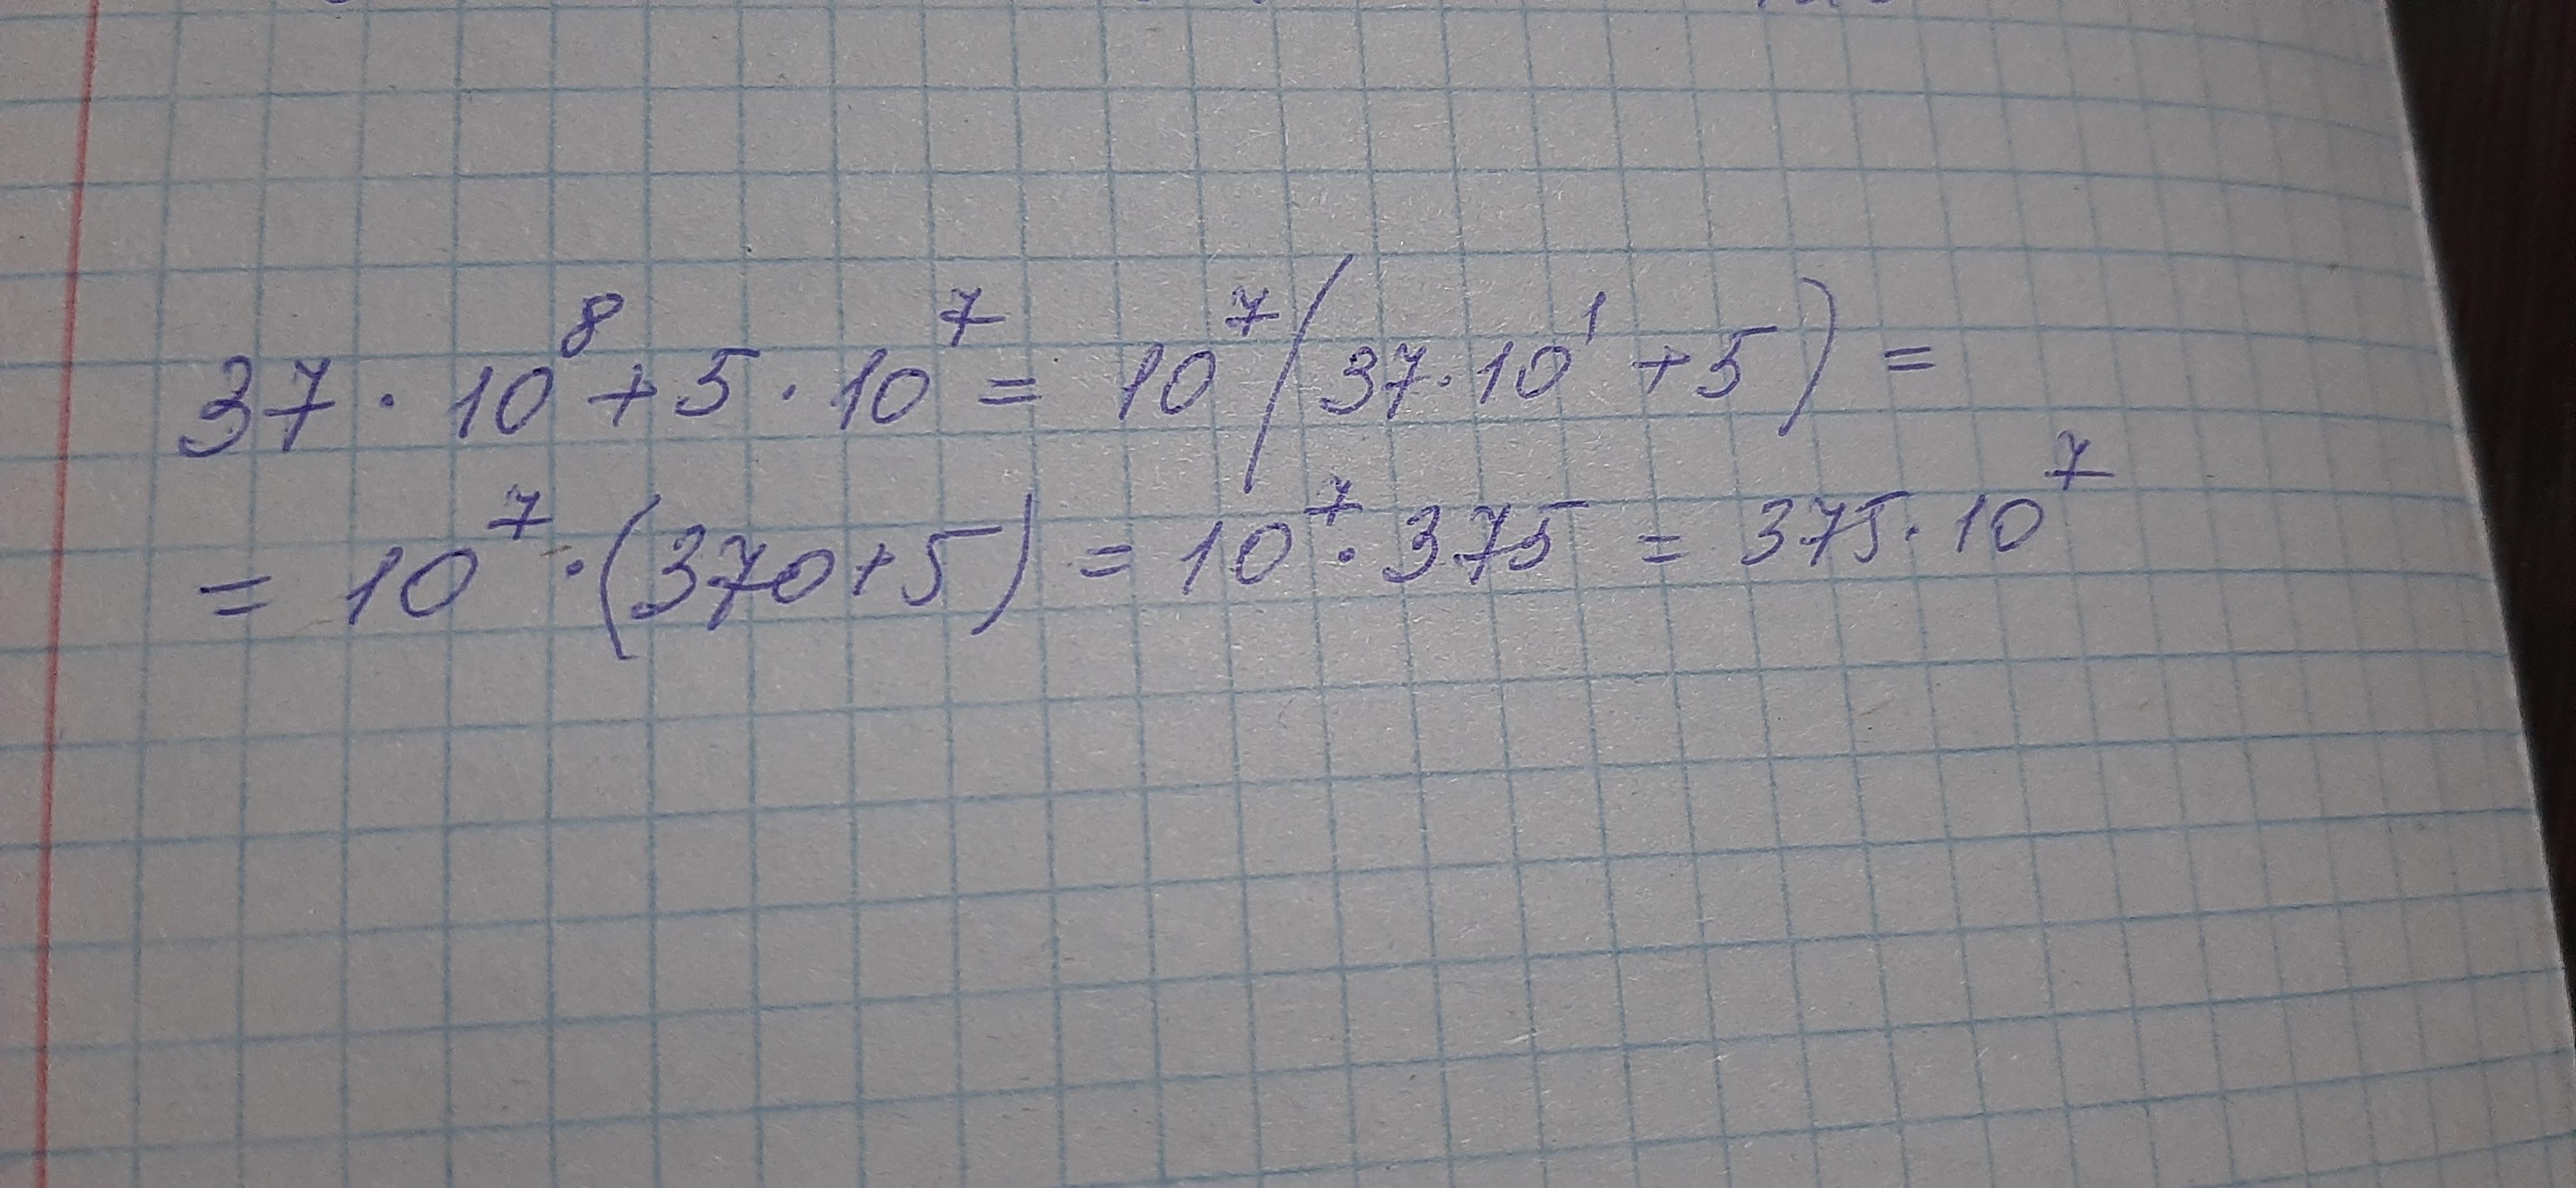 37 · 10⁸ + 5 · 10⁷ = 10⁷ (37 · 10¹ + 5) =
= 10⁷ · (370 + 5) = 10⁷ · 375 = 375 · 10⁷